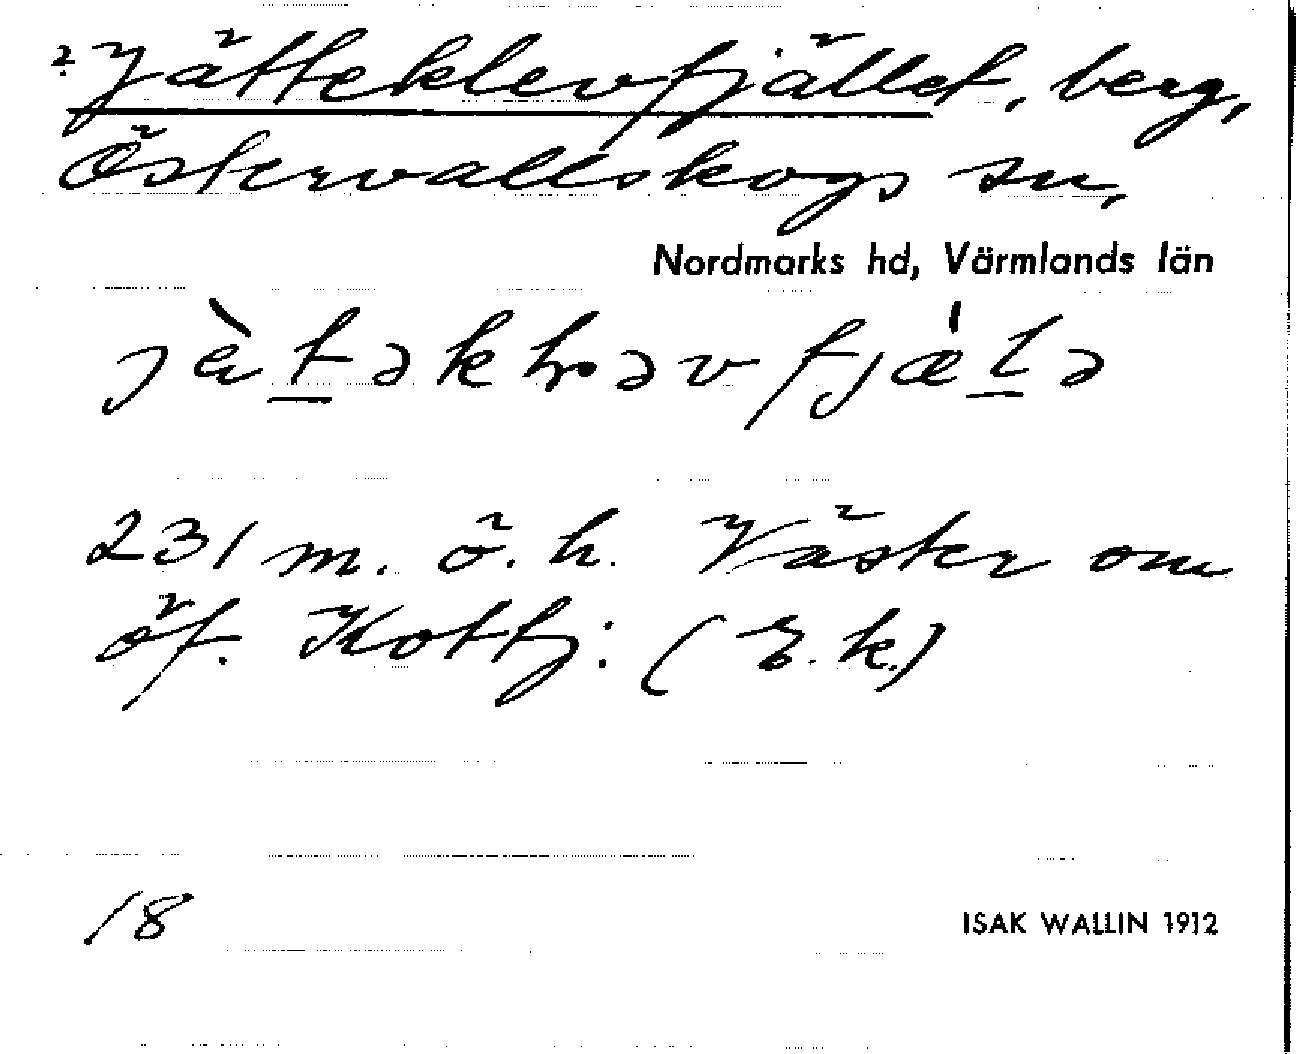 ? Jätteklevfjället, berg,
Östervallskogs sn,
Nordmarks hd, Värmlands län
231 m. ö. h. Väster om
öf. Kottj: (E. k.)
18
ISAK WALLIN 1912